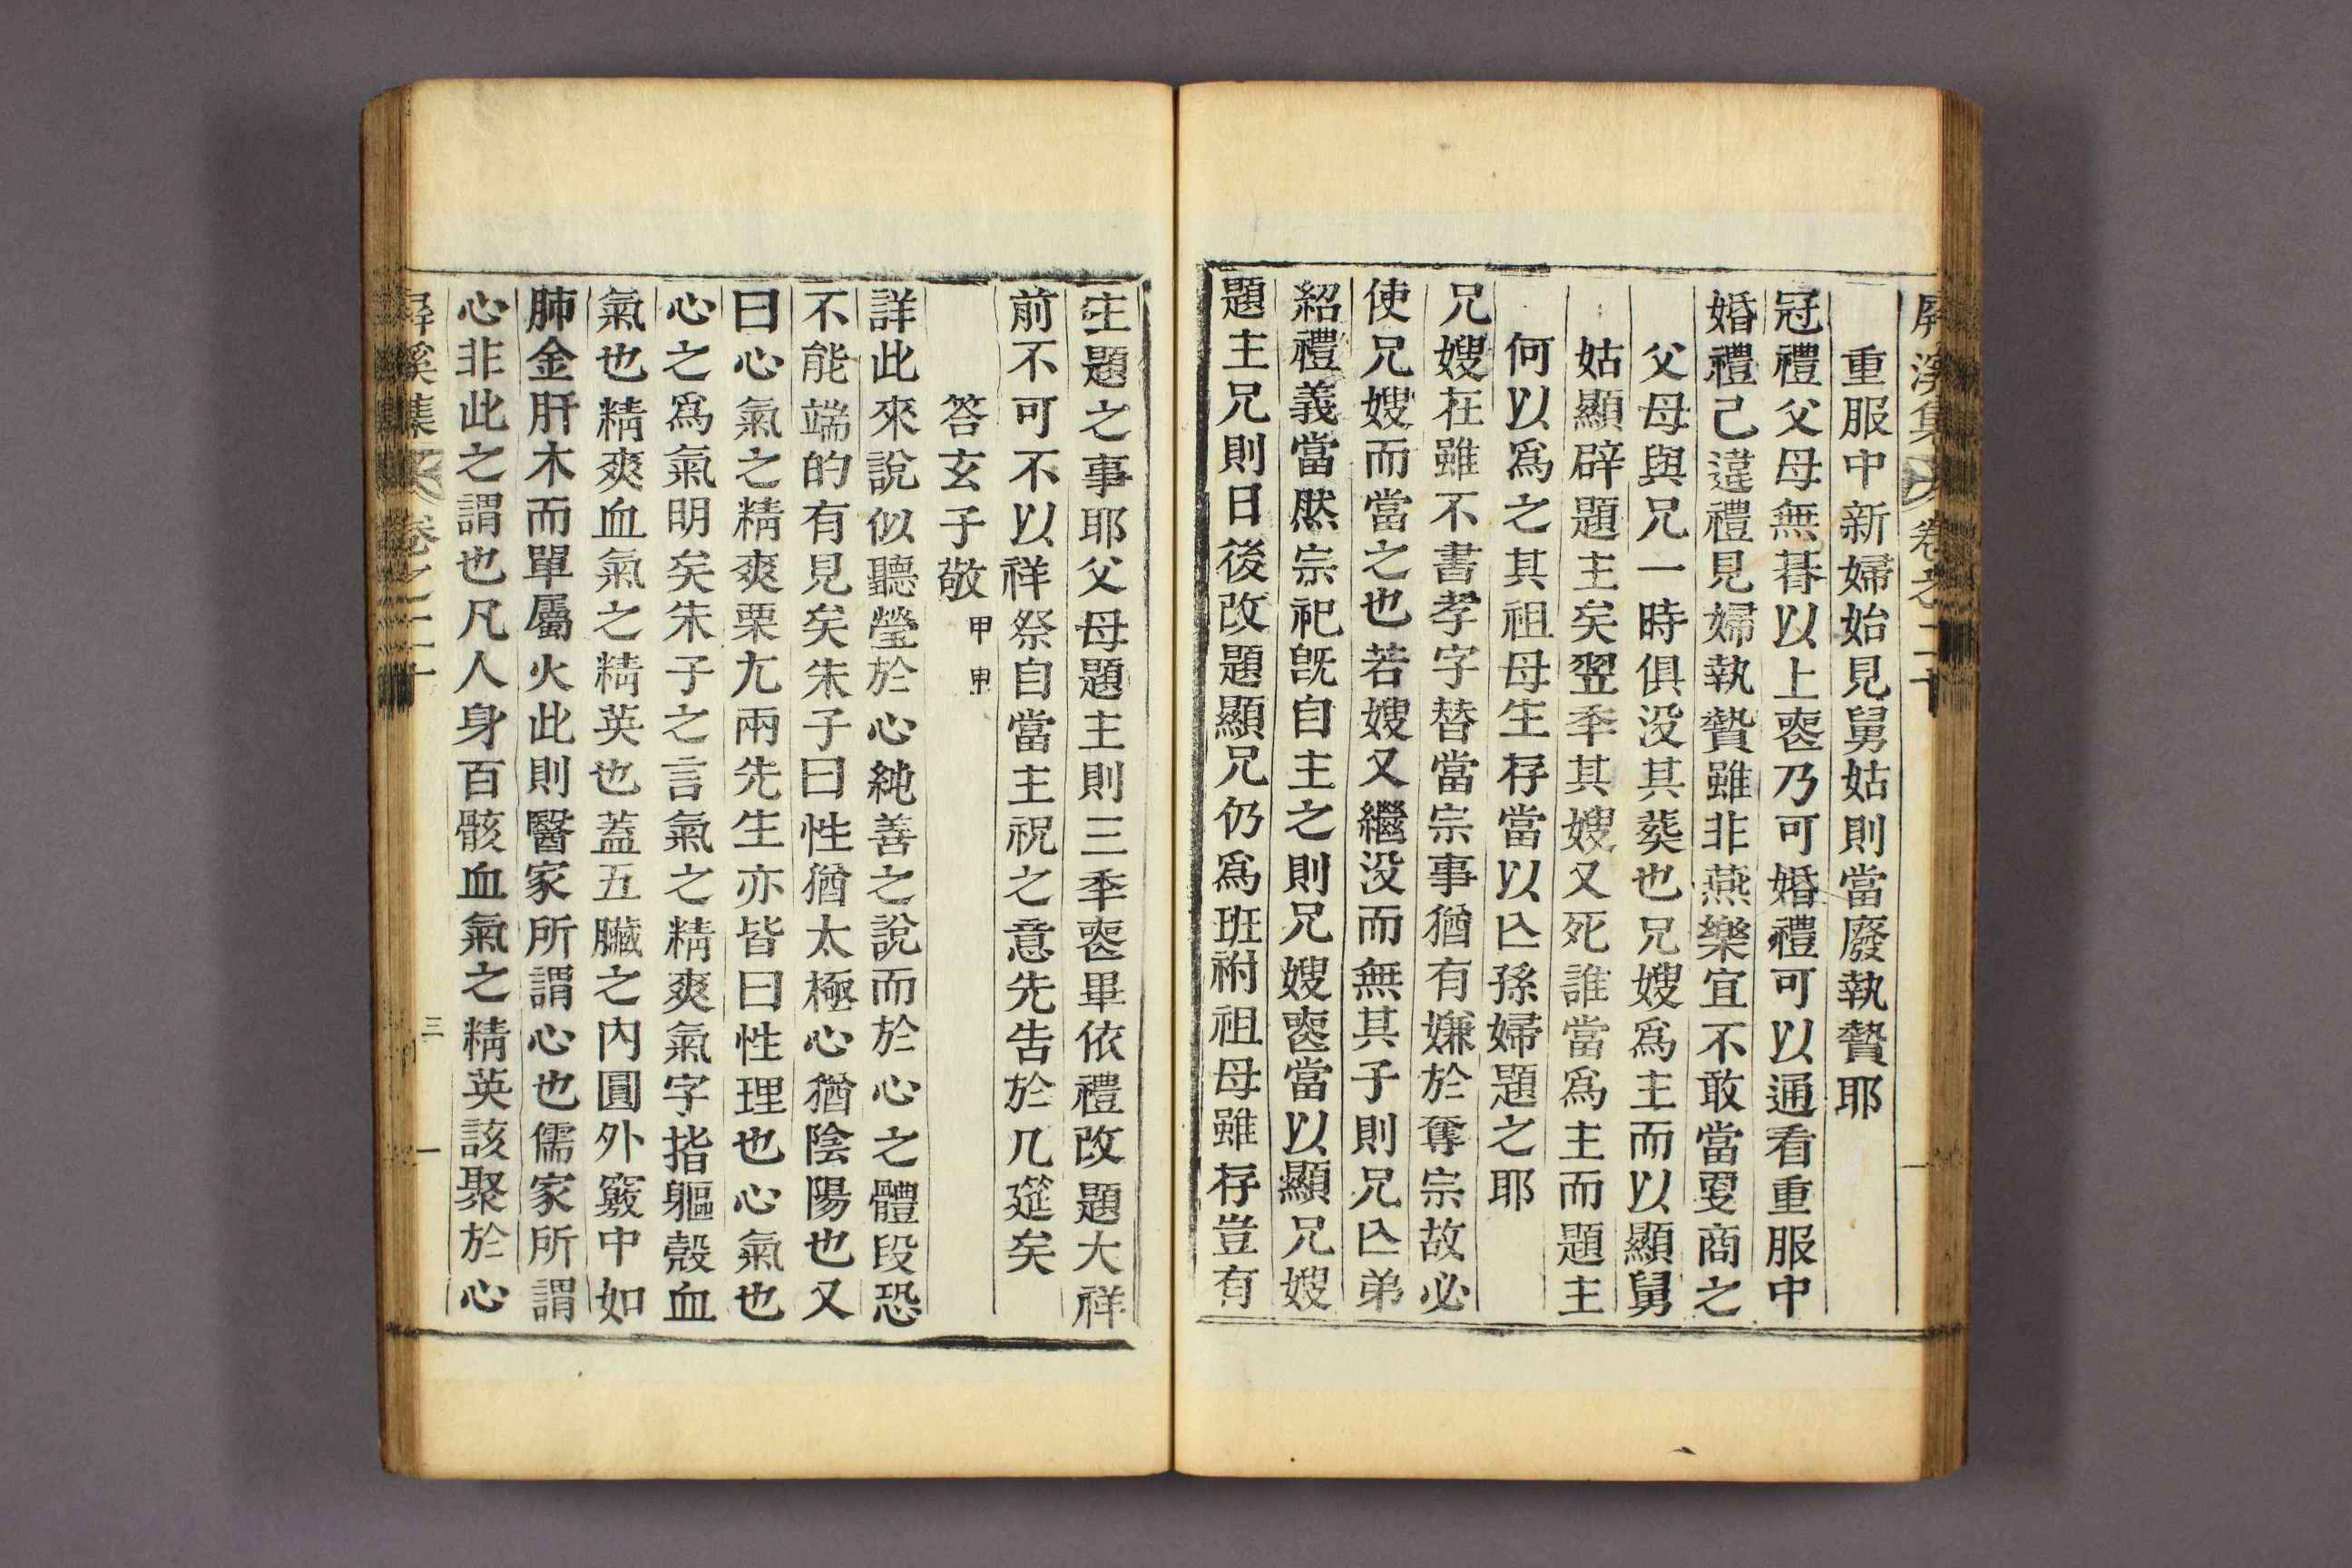 屛溪集 卷之二十
重服中新婦始見舅姑則當廢執贄耶
冠禮父母無朞以上䘮乃可婚禮可以通看重服中
婚禮已違禮見婦執贄雖非燕樂宜不敢當更商之
父母與兄一時俱没其葬也兄嫂爲主而以顯舅
姑顯辟題主矣翌秊其嫂又死誰當爲主而題主
何以爲之其祖母生存當以亾孫婦題之耶
兄嫂在雖不書孝字替當宗事猶有嫌於奪宗故必
使兄嫂而當之也若嫂又繼没而無其子則兄亾弟
紹禮義當然宗祀旣自主之則兄嫂䘮當以顯兄嫂
題主兄則日後改題顯兄仍爲班祔祖母雖存豈有
主題之事耶父母題主則三秊䘮畢依禮改題大祥
前不可不以祥祭自當主祝之意先告於几筵矣
答玄子敬 甲申
詳此來說似聽瑩於心純善之說而於心之體段恐
不能端的有見矣朱子曰性猶太極心猶陰陽也又
曰心氣之精爽栗尤兩先生亦皆曰性理也心氣也
心之爲氣明矣朱子之言氣之精爽氣字指軀殼血
氣也精爽血氣之精英也蓋五臟之內圓外竅中如
肺金肝木而單屬火此則醫家所謂心也儒家所謂
心非此之謂也凡人身百骸血氣之精英該聚於心
屛溪集 卷之二十 三